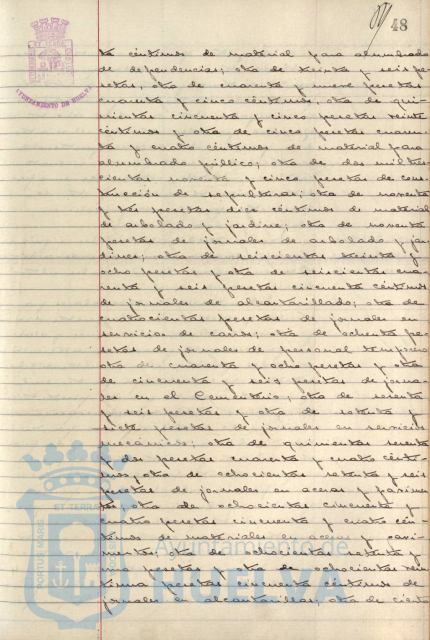 48
AYUNTAMIENTO DE HUELVA
ta céntimos de material para alumbrado
de dependencias; otra de treinta y seis pe-
setas, otra de cuarenta y nueve pesetas
cuarenta y cinco céntimos, otra de qui-
nientas cincuenta y cinco pesetas veinte
céntimos y otra de cinco pesetas cuaren-
ta y cuatro céntimos de material para
alumbrado público; otra de dos mil tres-
cientas noventa y cinco pesetas de cons-
trucción de sepulturas; otra de noventa
y tres pesetas diez céntimos de material
de arbolado y jardines; otra de noventa
pesetas de jornales de arbolado y jar-
dines; otra de seiscientas treinta y
ocho pesetas y otra de seiscientas cua-
renta y seis pesetas cincuenta céntimos
de jornales de alcantarillado; otra de
cuatrocientas pesetas de jornales en
servicios de carros; otra de ochenta pe-
setas de jornales de personal temporero
otra de cuarenta y ocho pesetas y otra
de cincuenta y seis pesetas de jorna-
les en el Cementerio; otra de sesenta
y seis pesetas y otra de setenta y
siete pesetas de jornales en servicios
mecánicos; otra de quinientas sesenta
y dos pesetas cuarenta y cuatro cénti-
mos y otra de ochocientas setenta y seis
pesetas de jornales en aceras y pavimen-
tos; otra de ochocientas cincuenta y
cuatro pesetas cincuenta y cuatro cén-
timos de materiales en aceras y pavi-
mentos; otra de ochocientas setenta y
una pesetas y otra de ochocientas
pesetas cincuenta céntimos de
jornales en alcantarillas; otra de ciento
PORTUS MARIS ET TERRAE
Ayuntamiento de
HUELVA